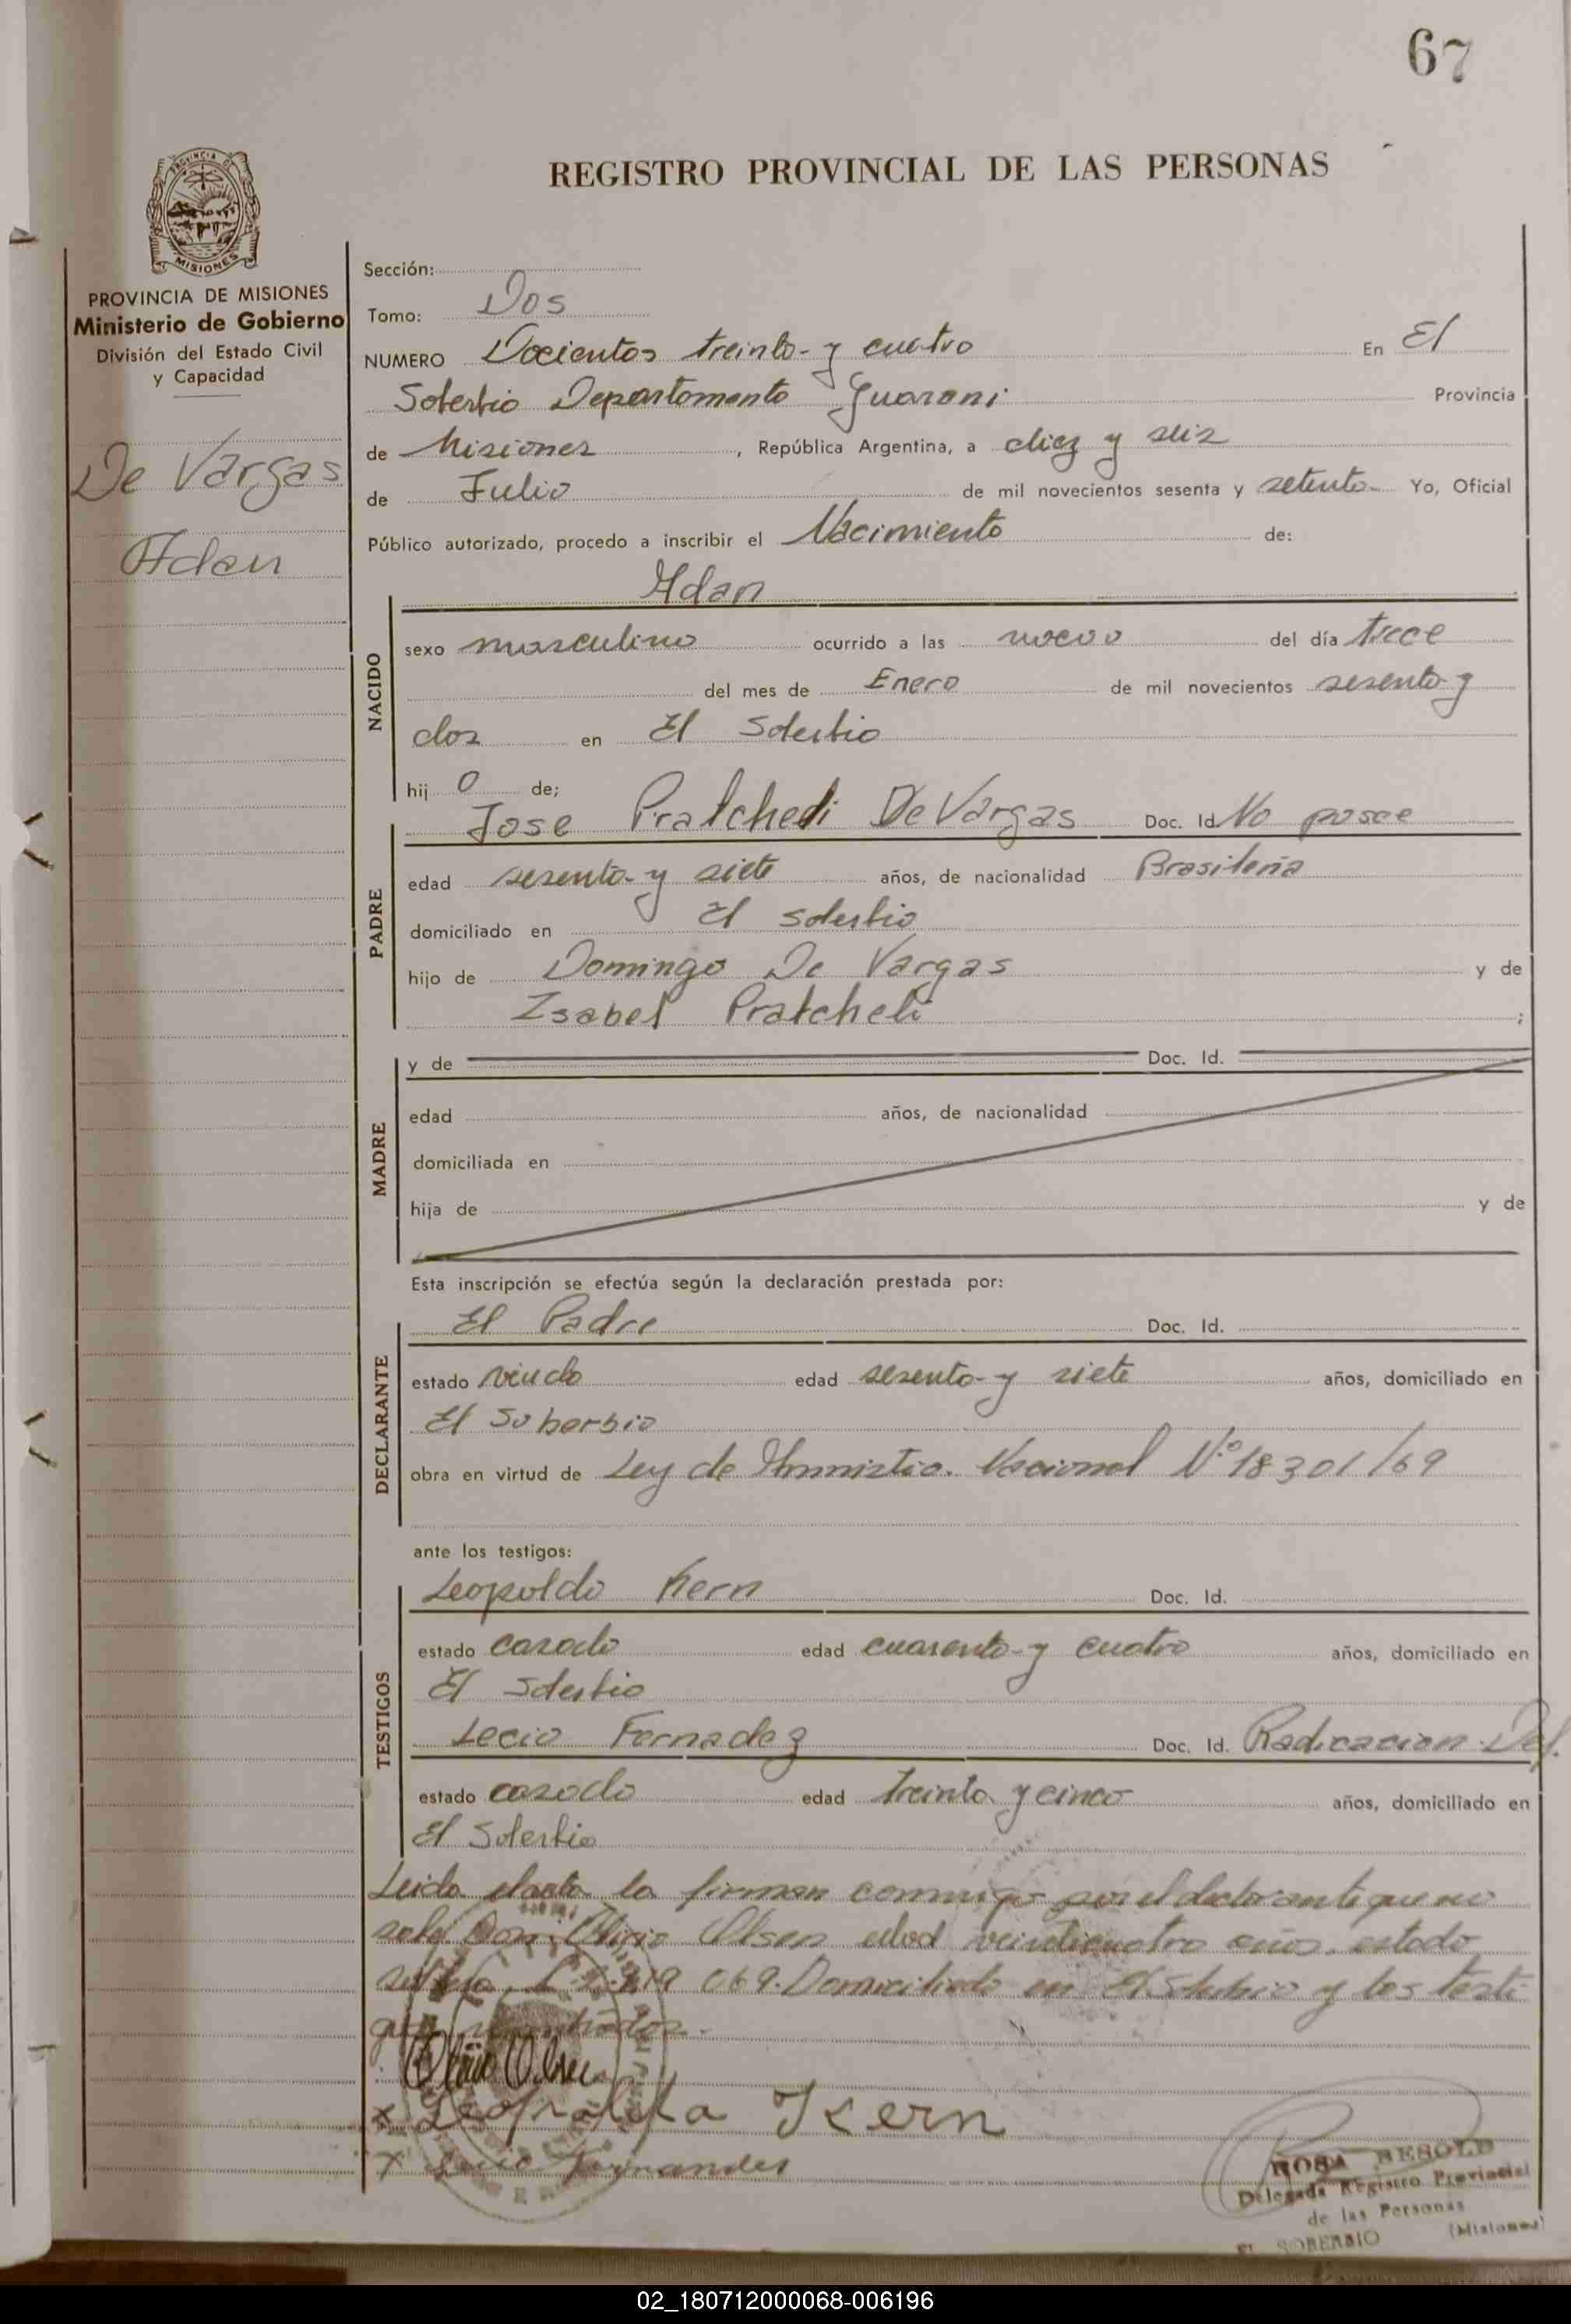 67
REGISTRO PROVINCIAL DE LAS PERSONAS
PROVINCIA DE
MISIONES
PROVINCIA DE MISIONES
Ministerio de Gobierno
División del Estado Civil
y Capacidad
De Vargas
Adan
Sección:
Tomo: Dos
NUMERO Docientos treinta y cuatro En El
Soberbio Departamento Guarani Provincia
de Misiones, República Argentina, a diez y seis
de Julio de mil novecientos sesenta y setenta Yo, Oficial
Público autorizado, procedo a inscribir el Nacimiento de:
Adan
NACIDO
sexo masculino ocurrido a las nueve del día trece
del mes de Enero de mil novecientos sesenta y
dos en El Soberbio
hij o de;
Jose Pratchedi De Vargas Doc. Id. No posee
PADRE
edad sesenta y siete años, de nacionalidad Brasileña
domiciliado en El Soberbio
hijo de Domingo De Vargas y de
Isabel Pratcheli ;
MADRE
y de Doc. Id.
edad años, de nacionalidad
domiciliada en
hija de y de
Esta inscripción se efectúa según la declaración prestada por:
El Padre Doc. Id.
DECLARANTE
estado viudo edad sesenta y siete años, domiciliado en
El Soberbio
obra en virtud de Ley de Amnistia Nacional Nº 18301/69
ante los testigos:
Leopoldo Kern Doc. Id.
TESTIGOS
estado casado edad cuarenta y cuatro años, domiciliado en
El Soberbio
Lecio Fernadez Doc. Id. Radicacion Def.
estado casado edad treinta y cinco años, domiciliado en
El Soberbio
Leida el acta la firman conmigo por el declarante que no
sabe Don Olirio Olsen edad veinticuatro años, estado
soltero, 069. Domiciliado en El Soberbio y los testi
gos nombrados.
Olirio Olsen
x Leopoldo Kern
x Lecio Fernandes
ROSA BESOLD
Delegada Registro Provincial
de las Personas
EL SOBERBIO (Misiones)
02_180712000068-006196